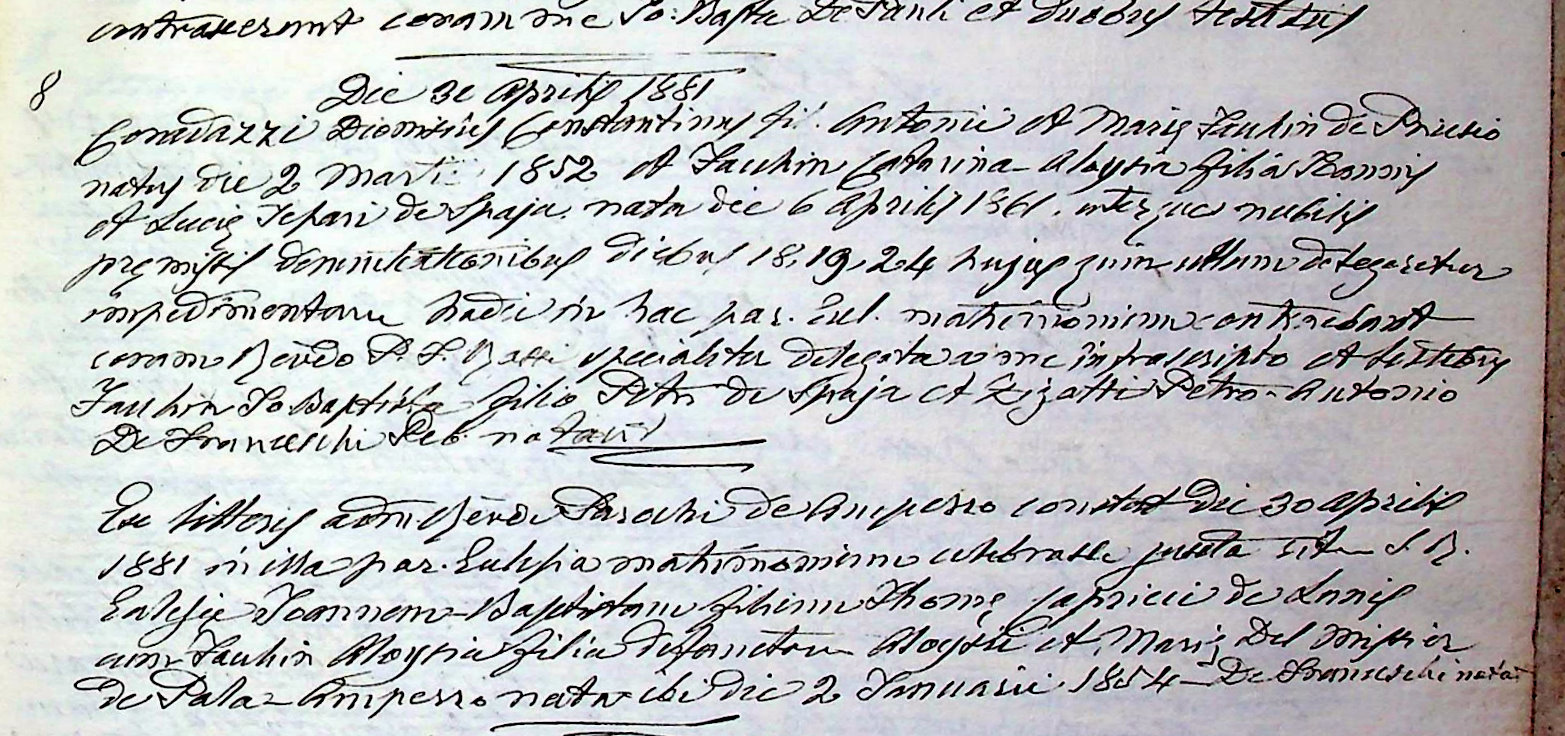 contraxerunt coram me Jo: Bapta De Pauli et duobus testibus
8
Die 30 Aprilis 1881
Corradazzi Dionisius Constantinus fil. Antonii et Marię Fachin de Priusio
natus die 2 Martii 1852 et Fachin Catarina Aloysia filia Joannis
et Lucię de Spaja nata die 6 Aprilis 1861. uterque nubilis
pręmissis denuntiationibus diebus 18, 19, 24 hujus cum ullum detegeretur
impedimentum hodie in hac par. Eccl. matrimonium contraebant
coram Revdo P. specialiter delegato a me infrascripto et testibus
Fachin Jo Baptista filio Petri de Spaja et Petro Antonio
De Franceschi Pleb. notavi
Ex litteris adm. Revdi Parochi de Ampezzo constat die 30 Aprilis
1881 in illa par. Eclesia matrimonium celebrasse juxta ritum S. R.
Eclesię Joannem Baptistam filium Thomę de
cum Fachin Aloysia filia defuncti Aloysii et Marię Del Missier
de Ampezzo nata ibi die 2 Januarii 1854 De Franceschi notat